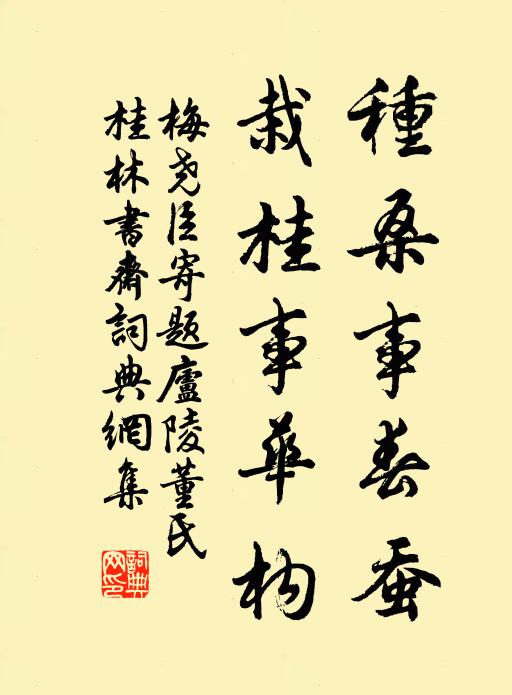 種桑事春蚕
栽桂事華构
梅尧臣寄題廬陵董氏
桂林書齋詞典網集
詞典网印